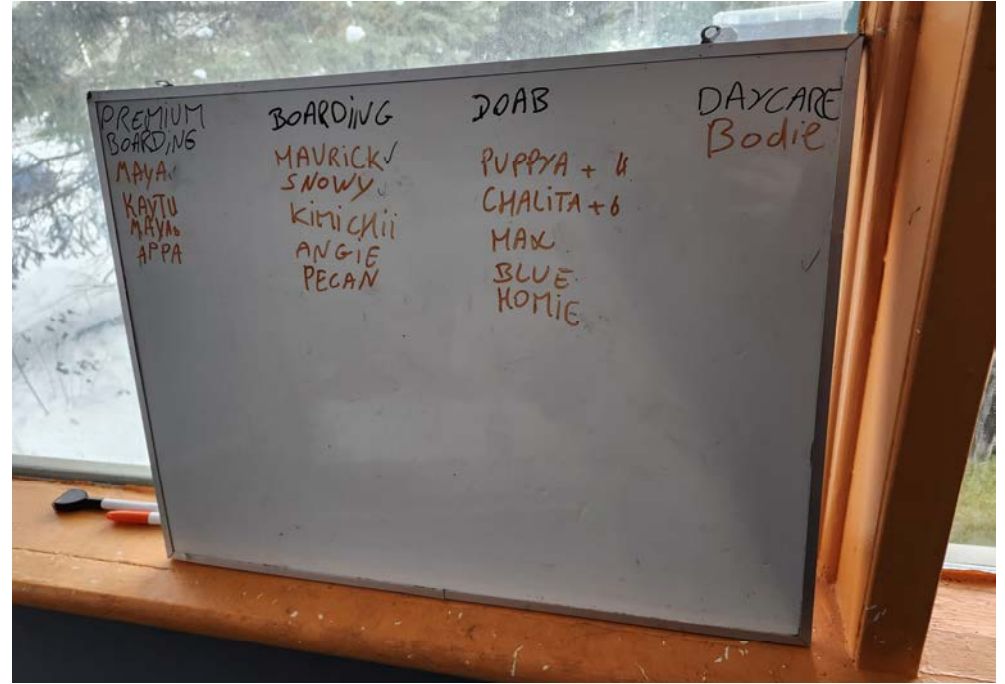 PREMIUM
BOARDING
MAYA ✓
KAYTU
MAYA
APPA
BOARDING
MAVRICK ✓
SNOWY ✓
KIMICHII
ANGIE
PECAN
DOAB
PUPPYA + 4
CHALITA + 6
MAX
BLUE
HOMIE
DAYCARE
Bodie
✓